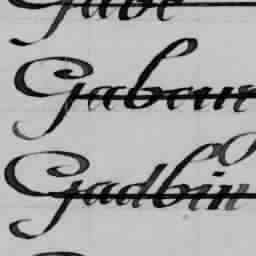 Gabe
Gabcur
Gadbin